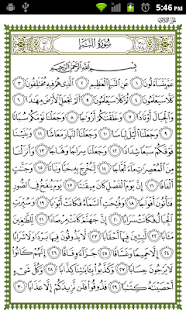 5:46 PM
سُورَةُ النَّبَإِ
بِسْمِ اللَّهِ الرَّحْمَٰنِ الرَّحِيمِ
عَمَّ يَتَسَاءَلُونَ ١ عَنِ النَّبَإِ الْعَظِيمِ ٢ الَّذِي هُمْ فِيهِ مُخْتَلِفُونَ ٣
كَلَّا سَيَعْلَمُونَ ٤ ثُمَّ كَلَّا سَيَعْلَمُونَ ٥ أَلَمْ نَجْعَلِ الْأَرْضَ مِهَادًا ٦
وَالْجِبَالَ أَوْتَادًا ٧ وَخَلَقْنَاكُمْ أَزْوَاجًا ٨ وَجَعَلْنَا نَوْمَكُمْ سُبَاتًا ٩
وَجَعَلْنَا اللَّيْلَ لِبَاسًا ١٠ وَجَعَلْنَا النَّهَارَ مَعَاشًا ١١ وَبَنَيْنَا
فَوْقَكُمْ سَبْعًا شِدَادًا ١٢ وَجَعَلْنَا سِرَاجًا وَهَّاجًا ١٣ وَأَنزَلْنَا
مِنَ الْمُعْصِرَاتِ مَاءً ثَجَّاجًا ١٤ لِّنُخْرِجَ بِهِ حَبًّا وَنَبَاتًا ١٥ وَجَنَّاتٍ
أَلْفَافًا ١٦ إِنَّ يَوْمَ الْفَصْلِ كَانَ مِيقَاتًا ١٧ يَوْمَ يُنفَخُ فِي الصُّورِ فَتَأْتُونَ
أَفْوَاجًا ١٨ وَفُتِحَتِ السَّمَاءُ فَكَانَتْ أَبْوَابًا ١٩ وَسُيِّرَتِ الْجِبَالُ
فَكَانَتْ سَرَابًا ٢٠ إِنَّ جَهَنَّمَ كَانَتْ مِرْصَادًا ٢١ لِّلطَّاغِينَ مَآبًا
٢٢ لَّابِثِينَ فِيهَا أَحْقَابًا ٢٣ لَّا يَذُوقُونَ فِيهَا بَرْدًا وَلَا شَرَابًا
٢٤ إِلَّا حَمِيمًا وَغَسَّاقًا ٢٥ جَزَاءً وِفَاقًا ٢٦ إِنَّهُمْ كَانُوا
لَا يَرْجُونَ حِسَابًا ٢٧ وَكَذَّبُوا بِآيَاتِنَا كِذَّابًا ٢٨ وَكُلَّ شَيْءٍ
أَحْصَيْنَاهُ كِتَابًا ٢٩ فَذُوقُوا فَلَن نَّزِيدَكُمْ إِلَّا عَذَابًا ٣٠